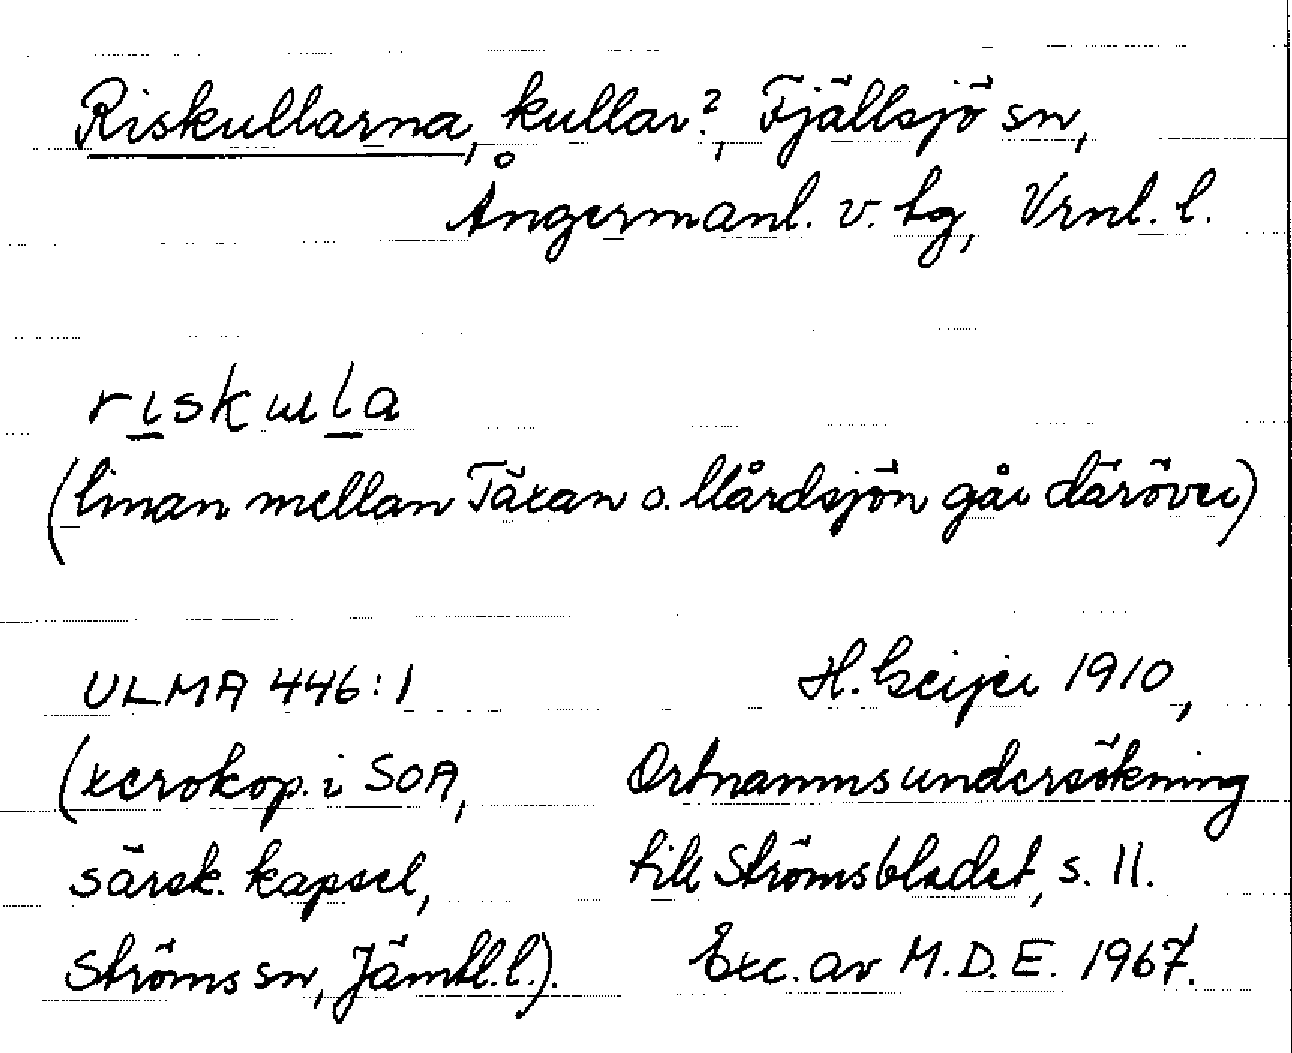 Riskullarna, kullar?, Fjällsjö sn,
Ångermanl. v. tg, Vrnl. l.
riskɯla
(linan mellan Täxan o. Mårdsjön går däröver)
ULMA 446:1 H. Geijer 1910,
(xerokop. i SOA, Ortnamnsundersökning
särsk. kapsel, till Strömsbladet, s. 11.
Ströms sn, Jämtl. l.). Exc. av M.D.E. 1967.